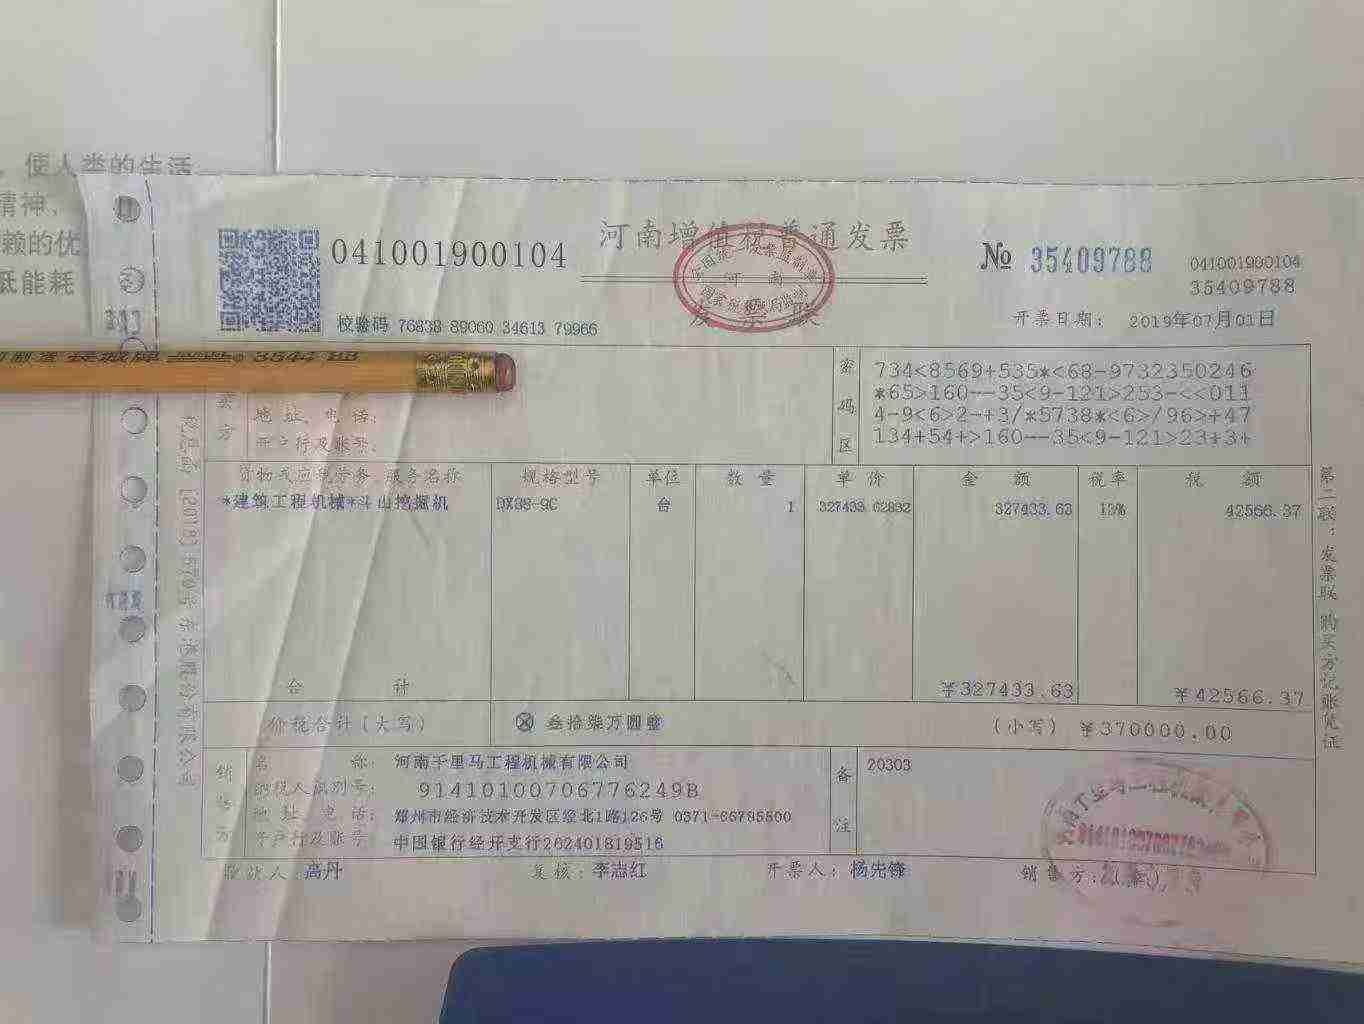 使人类的生活
精神、
赖的优
低能耗
041001900104
河南增值税普通发票
№ 35409788
041001900104
35409788
校验码 76838 89060 34613 79966
开票日期： 2019年07月01日
全国统一发票监制章
河 南
发 票 联
3544
买
方
地 址、电 话：
开户行及账号：
密
码
区
734<8569+535*<68-9732350246
*65>160--35<9-121>253-<<011
4-9<6>2-+3/*5738*<6>/96>+47
134+54+>160--35<9-121>23+3+
货物或应税劳务、服务名称 规格型号 单位 数 量 单 价 金 额 税率 税 额
*建筑工程机械*斗山挖掘机 DX88-9C 台 1 327433.62832 327433.63 13% 42566.37
合 计 ￥327433.63 ￥42566.37
价税合计（大写） ⊗ 叁拾柒万圆整 （小写） ￥370000.00
销
售
方
名 称： 河南千里马工程机械有限公司
纳税人识别号： 91410100706776249B
地 址、电 话： 郑州市经济技术开发区经北1路126号 0371-66795800
开户行及账号： 中国银行经开支行262401819516
备
注
20303
收款人：高丹 复核：李志红 开票人：杨先锋 销售方：（章）
第二联：发票联 购买方记账凭证